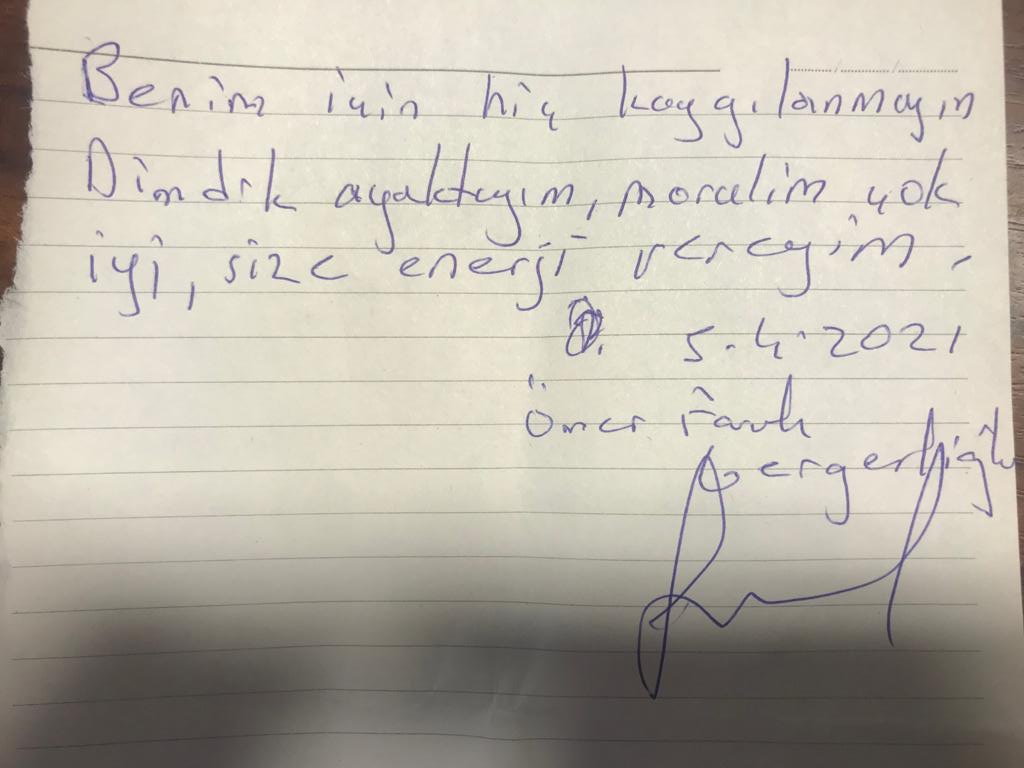 Benim için hiç kaygılanmayın
Dimdik ayaktayım, moralim çok
iyi, size enerji vereyim.
5.4.2021
Ömer Faruk
Gergerlioğlu